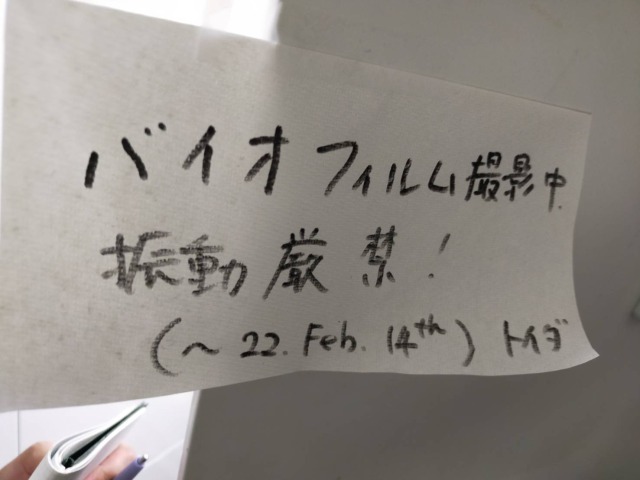 バイオフィルム撮影中
振動厳禁!
(~22. Feb. 14th) トイダ